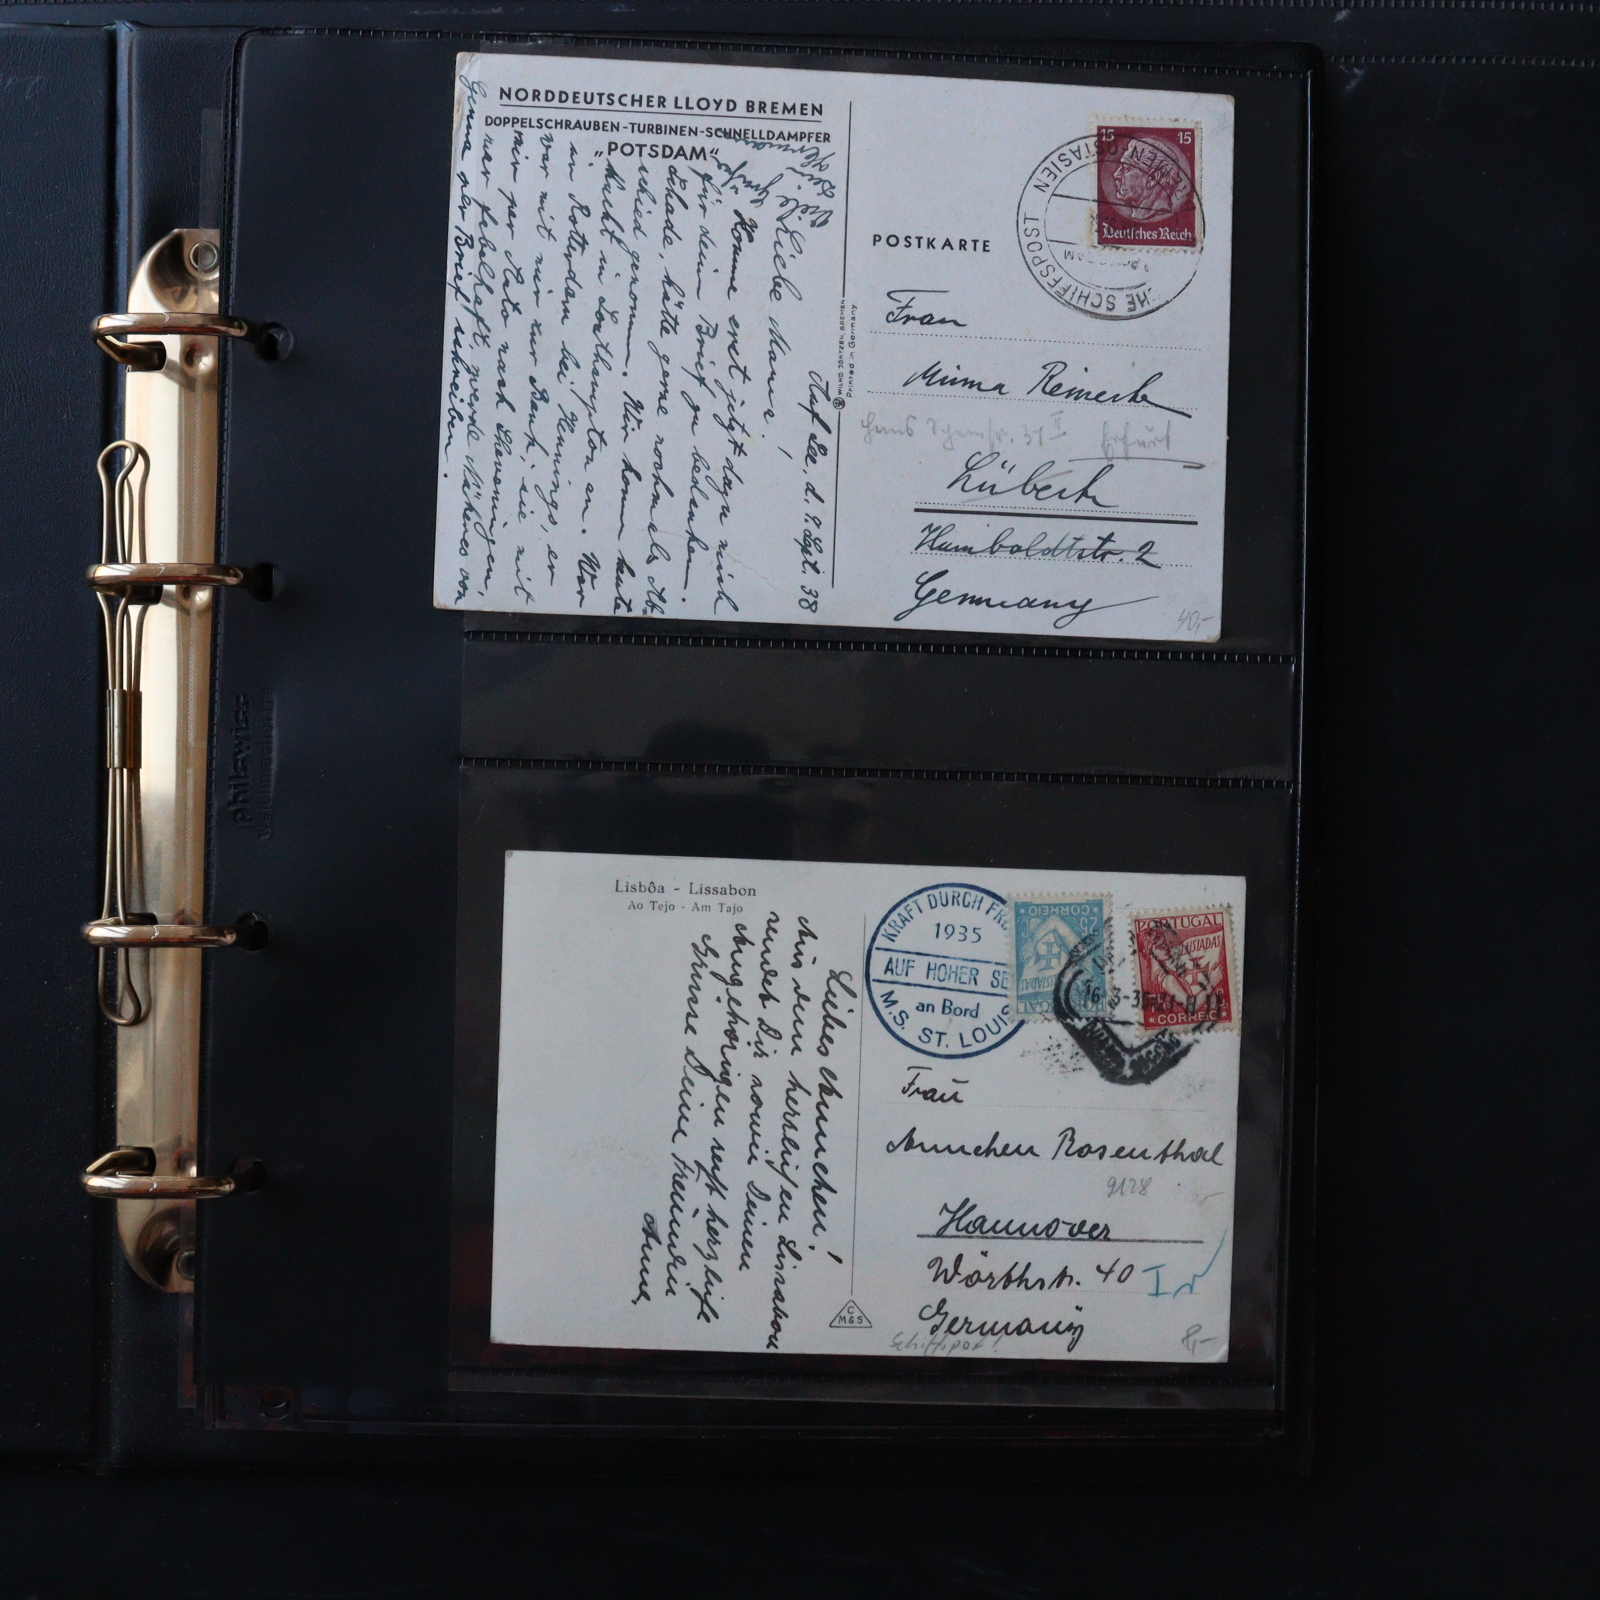 NORDDEUTSCHER LLOYD BREMEN
DOPPELSCHRAUBEN-TURBINEN-SCHNELLDAMPFER
„POTSDAM“
Auf See, d. 9. Sept. 38
Liebe Mama!
Komme erst jetzt dazu mich
für dein Brief zu bedanken.
Schade, hätte gerne nochmals Ab-
schied genommen. Wir komm heute
Nacht in Southampton an. War
in Rotterdam bei Hennings, er
war mit mir zur Bank, sie mit
mir per Auto nach Scheveningen,
war fabelhaft, werde Näheres von
Genua per Brief schreiben.
Viele
POSTKARTE
15 15
Deutsches Reich
OSTASIEN
HE SCHIFFSPOST
Frau
Minna Reinecke
Erfurt
Lübeck
Humboldtstr. 2
Germany
40,-
philawiss
Lisbôa - Lissabon
Ao Tejo - Am Tajo
Liebes Annchen!
Aus dem herrlichen Lissabon
sendet Dir sowie Deinen
Angehörigen recht herzliche
Grüsse Deine Freundin
Anna.
KRAFT DURCH FRE
1935
AUF HOHER SE
an Bord
M.S. ST. LOUIS
CORREIO
PORTUGAL
LUSIADAS
CORREIO
Frau
Annchen Rosenthal
9128
Hannover
Wörthstr. 40
Germany
Schiffspost!
8,-
C
M&S